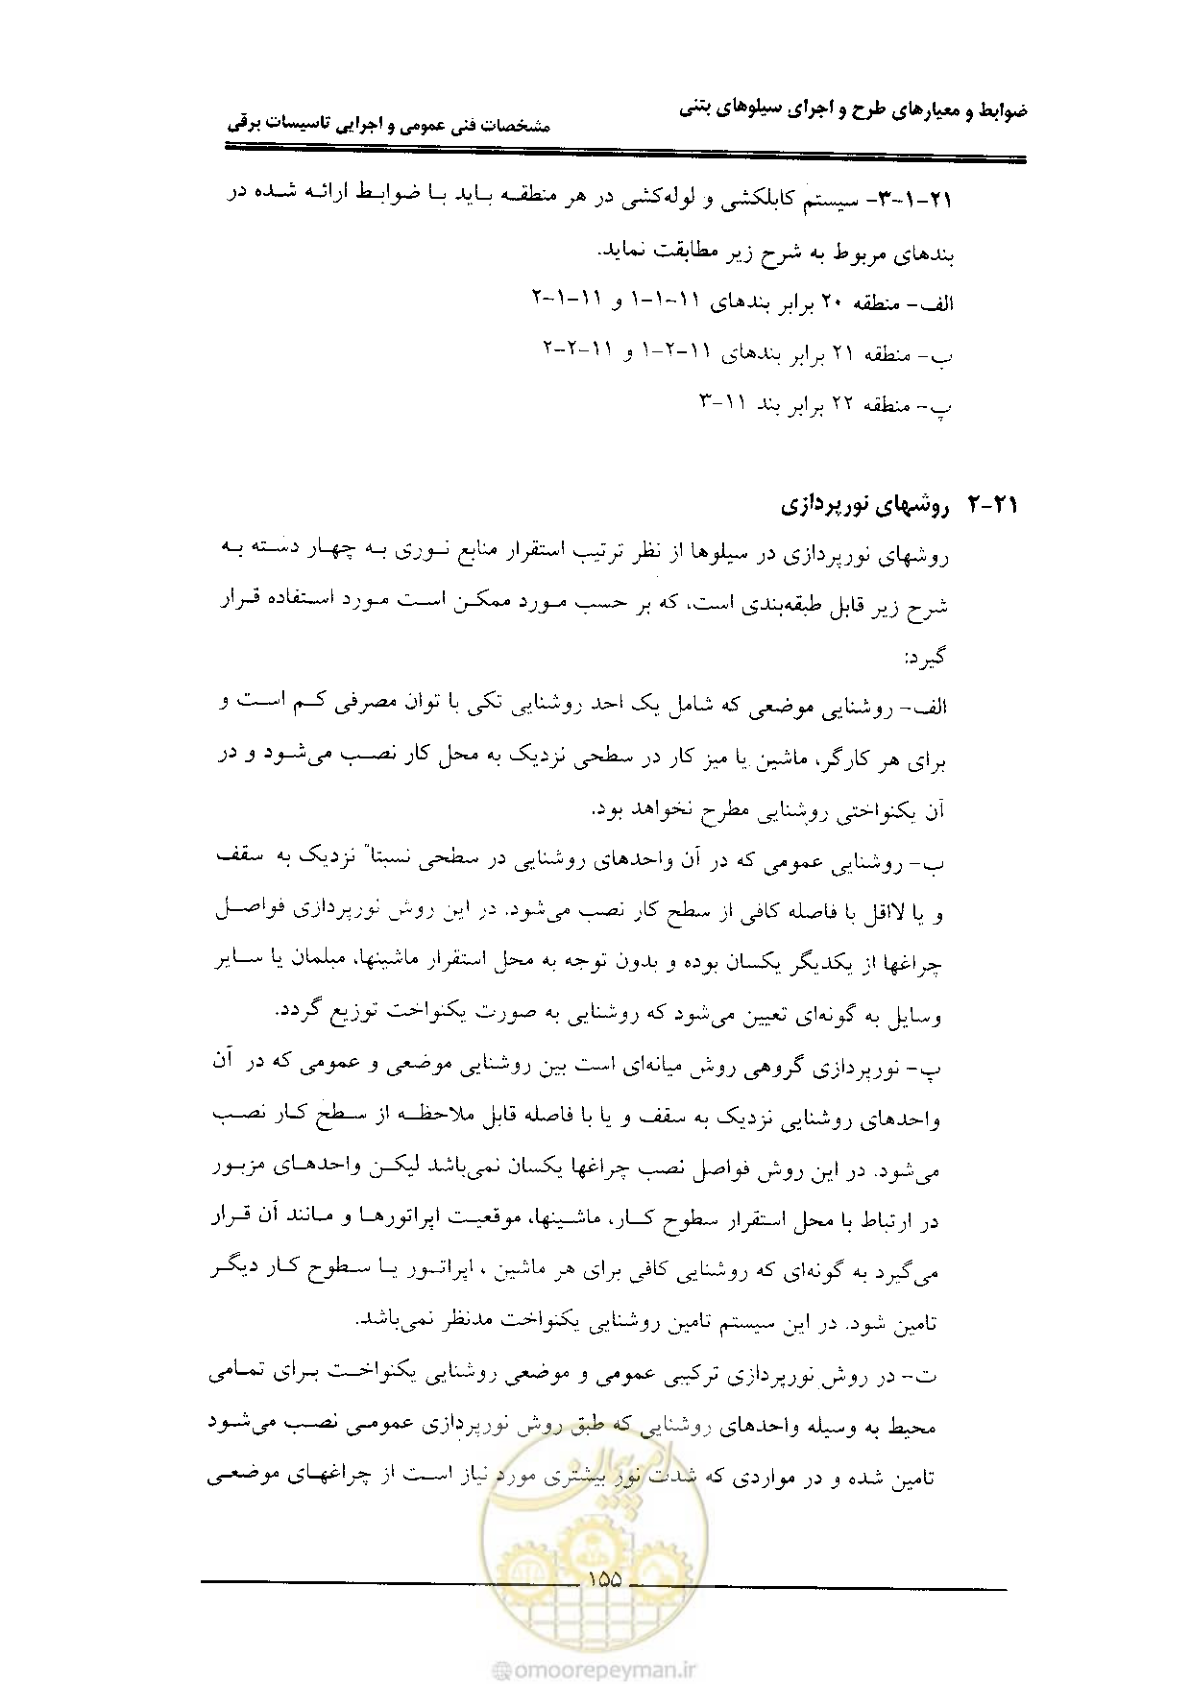 ضوابط و معیارهای طرح و اجرای سیلوهای بتنی
مشخصات فنی عمومی و اجرایی تاسیسات برقی
۲۱-۱-۳- سیستم کابلکشی و لوله‌کشی در هر منطقه باید با ضوابط ارائه شده در
بندهای مربوط به شرح زیر مطابقت نماید.
الف- منطقه ۲۰ برابر بندهای ۱۱-۱-۱ و ۱۱-۱-۲
ب- منطقه ۲۱ برابر بندهای ۱۱-۲-۱ و ۱۱-۲-۲
پ- منطقه ۲۲ برابر بند ۱۱-۳
۲۱-۲ روشهای نورپردازی
روشهای نورپردازی در سیلوها از نظر ترتیب استقرار منابع نوری به چهار دسته به
شرح زیر قابل طبقه‌بندی است، که بر حسب مورد ممکن است مورد استفاده قرار
گیرد:
الف- روشنایی موضعی که شامل یک احد روشنایی تکی با توان مصرفی کم است و
برای هر کارگر، ماشین یا میز کار در سطحی نزدیک به محل کار نصب می‌شود و در
آن یکنواختی روشنایی مطرح نخواهد بود.
ب- روشنایی عمومی که در آن واحدهای روشنایی در سطحی نسبتاً نزدیک به سقف
و یا لااقل با فاصله کافی از سطح کار نصب می‌شود. در این روش نورپردازی فواصل
چراغها از یکدیگر یکسان بوده و بدون توجه به محل استقرار ماشینها، مبلمان یا سایر
وسایل به گونه‌ای تعیین می‌شود که روشنایی به صورت یکنواخت توزیع گردد.
پ- نورپردازی گروهی روش میانه‌ای است بین روشنایی موضعی و عمومی که در آن
واحدهای روشنایی نزدیک به سقف و یا با فاصله قابل ملاحظه از سطح کار نصب
می‌شود. در این روش فواصل نصب چراغها یکسان نمی‌باشد لیکن واحدهای مزبور
در ارتباط با محل استقرار سطوح کار، ماشینها، موقعیت اپراتورها و مانند آن قرار
می‌گیرد به گونه‌ای که روشنایی کافی برای هر ماشین ، اپراتور یا سطوح کار دیگر
تامین شود. در این سیستم تامین روشنایی یکنواخت مدنظر نمی‌باشد.
ت- در روش نورپردازی ترکیبی عمومی و موضعی روشنایی یکنواخت برای تمامی
محیط به وسیله واحدهای روشنایی که طبق روش نورپردازی عمومی نصب می‌شود
تامین شده و در مواردی که شدت نور بیشتری مورد نیاز است از چراغهای موضعی
امور پیمان
۱۵۵
@omoorepeyman.ir